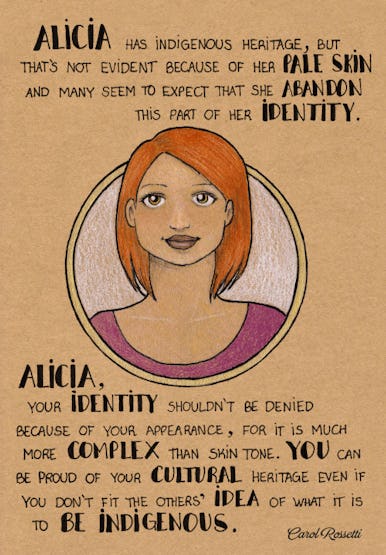 ALiCiA HAS iNDiGENOUS HERiTAGE, BUT
THAT'S NOT EVIDENT BECAUSE OF HER PALE SKiN
AND MANY SEEM TO EXPECT THAT SHE ABANDON
THIS PART OF HER iDENTiTY.
ALiCiA,
YOUR iDENTiTY SHOULDN'T BE DENIED
BECAUSE OF YOUR APPEARANCE, FOR IT IS MUCH
MORE COMPLEX THAN SKIN TONE. YOU CAN
BE PROUD OF YOUR CULTURAL HERITAGE EVEN IF
YOU DON'T FIT THE OTHERS' iDEA OF WHAT IT IS
TO BE iNDiGENOUS.
Carol Rossetti